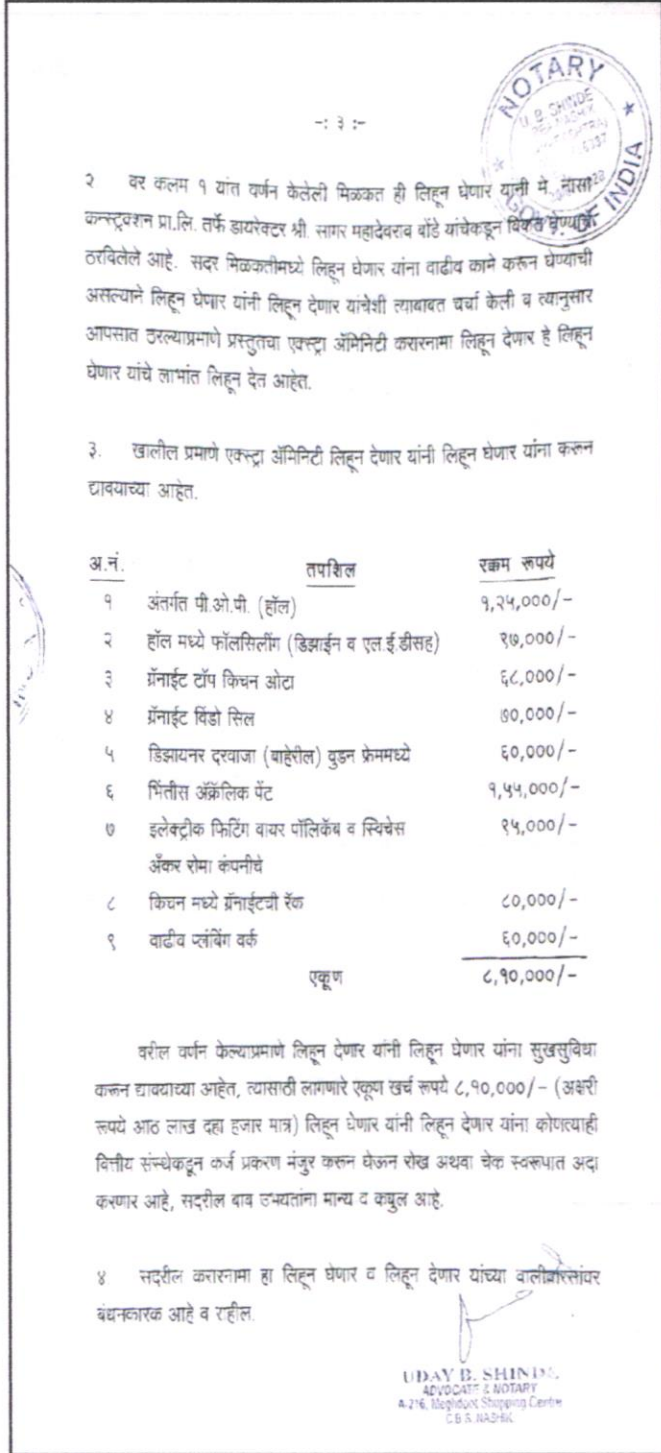 NOTARY
U. B. SHINDE
OF INDIA
-: ३ :-
२ वर कलम १ यांत वर्णन केलेली मिळकत ही लिहून घेणार यानी मे. नासा
कन्स्ट्रक्शन प्रा.लि. तर्फे डायरेक्टर श्री. सागर महादेवराव बोंडे यांचेकडून विकत घेण्याचे
ठरविलेले आहे. सदर मिळकतीमध्ये लिहून घेणार यांना वाढीव कामे करून घेण्याची
असल्याने लिहून घेणार यांनी लिहून देणार यांचेशी त्याबाबत चर्चा केली व त्यानुसार
आपसात ठरल्याप्रमाणे प्रस्तुतचा एक्स्ट्रा ॲमिनिटी करारनामा लिहून देणार हे लिहून
घेणार यांचे लाभांत लिहून देत आहेत.
३. खालील प्रमाणे एक्स्ट्रा ॲमिनिटी लिहून देणार यांनी लिहून घेणार यांना करून
द्यावयाच्या आहेत.
अ.नं. तपशिल रक्कम रूपये
१ अंतर्गत पी.ओ.पी. (हॉल) १,२५,०००/-
२ हॉल मध्ये फॉलसिलींग (डिझाईन व एल.ई.डीसह) ९७,०००/-
३ ग्रॅनाईट टॉप किचन ओटा ६८,०००/-
४ ग्रॅनाईट विंडो सिल ७०,०००/-
५ डिझायनर दरवाजा (बाहेरील) वुडन फ्रेममध्ये ६०,०००/-
६ भिंतीस ॲक्रॅलिक पेंट १,५५,०००/-
७ इलेक्ट्रीक फिटिंग वायर पॉलिकॅब व स्विचेस ९५,०००/-
अँकर रोमा कंपनीचे
८ किचन मध्ये ग्रॅनाईटची रॅक ८०,०००/-
९ वाढीव प्लंबिंग वर्क ६०,०००/-
एकूण ८,१०,०००/-
वरील वर्णन केल्याप्रमाणे लिहून देणार यांनी लिहून घेणार यांना सुखसुविधा
करून द्यावयाच्या आहेत, त्यासाठी लागणारे एकूण खर्च रूपये ८,१०,०००/- (अक्षरी
रूपये आठ लाख दहा हजार मात्र) लिहून घेणार यांनी लिहून देणार यांना कोणत्याही
वित्तीय संस्थेकडून कर्ज प्रकरण मंजुर करून घेऊन रोख अथवा चेक स्वरूपात अदा
करणार आहे, सदरील बाब उभयतांना मान्य व कबुल आहे.
४ सदरील करारनामा हा लिहून घेणार व लिहून देणार यांच्या वालीवारसांवर
बंधनकारक आहे व राहील.
UDAY B. SHINDE
ADVOCATE & NOTARY
A-216, Meghdoot Shopping Centre
C.B.S. NASHIK